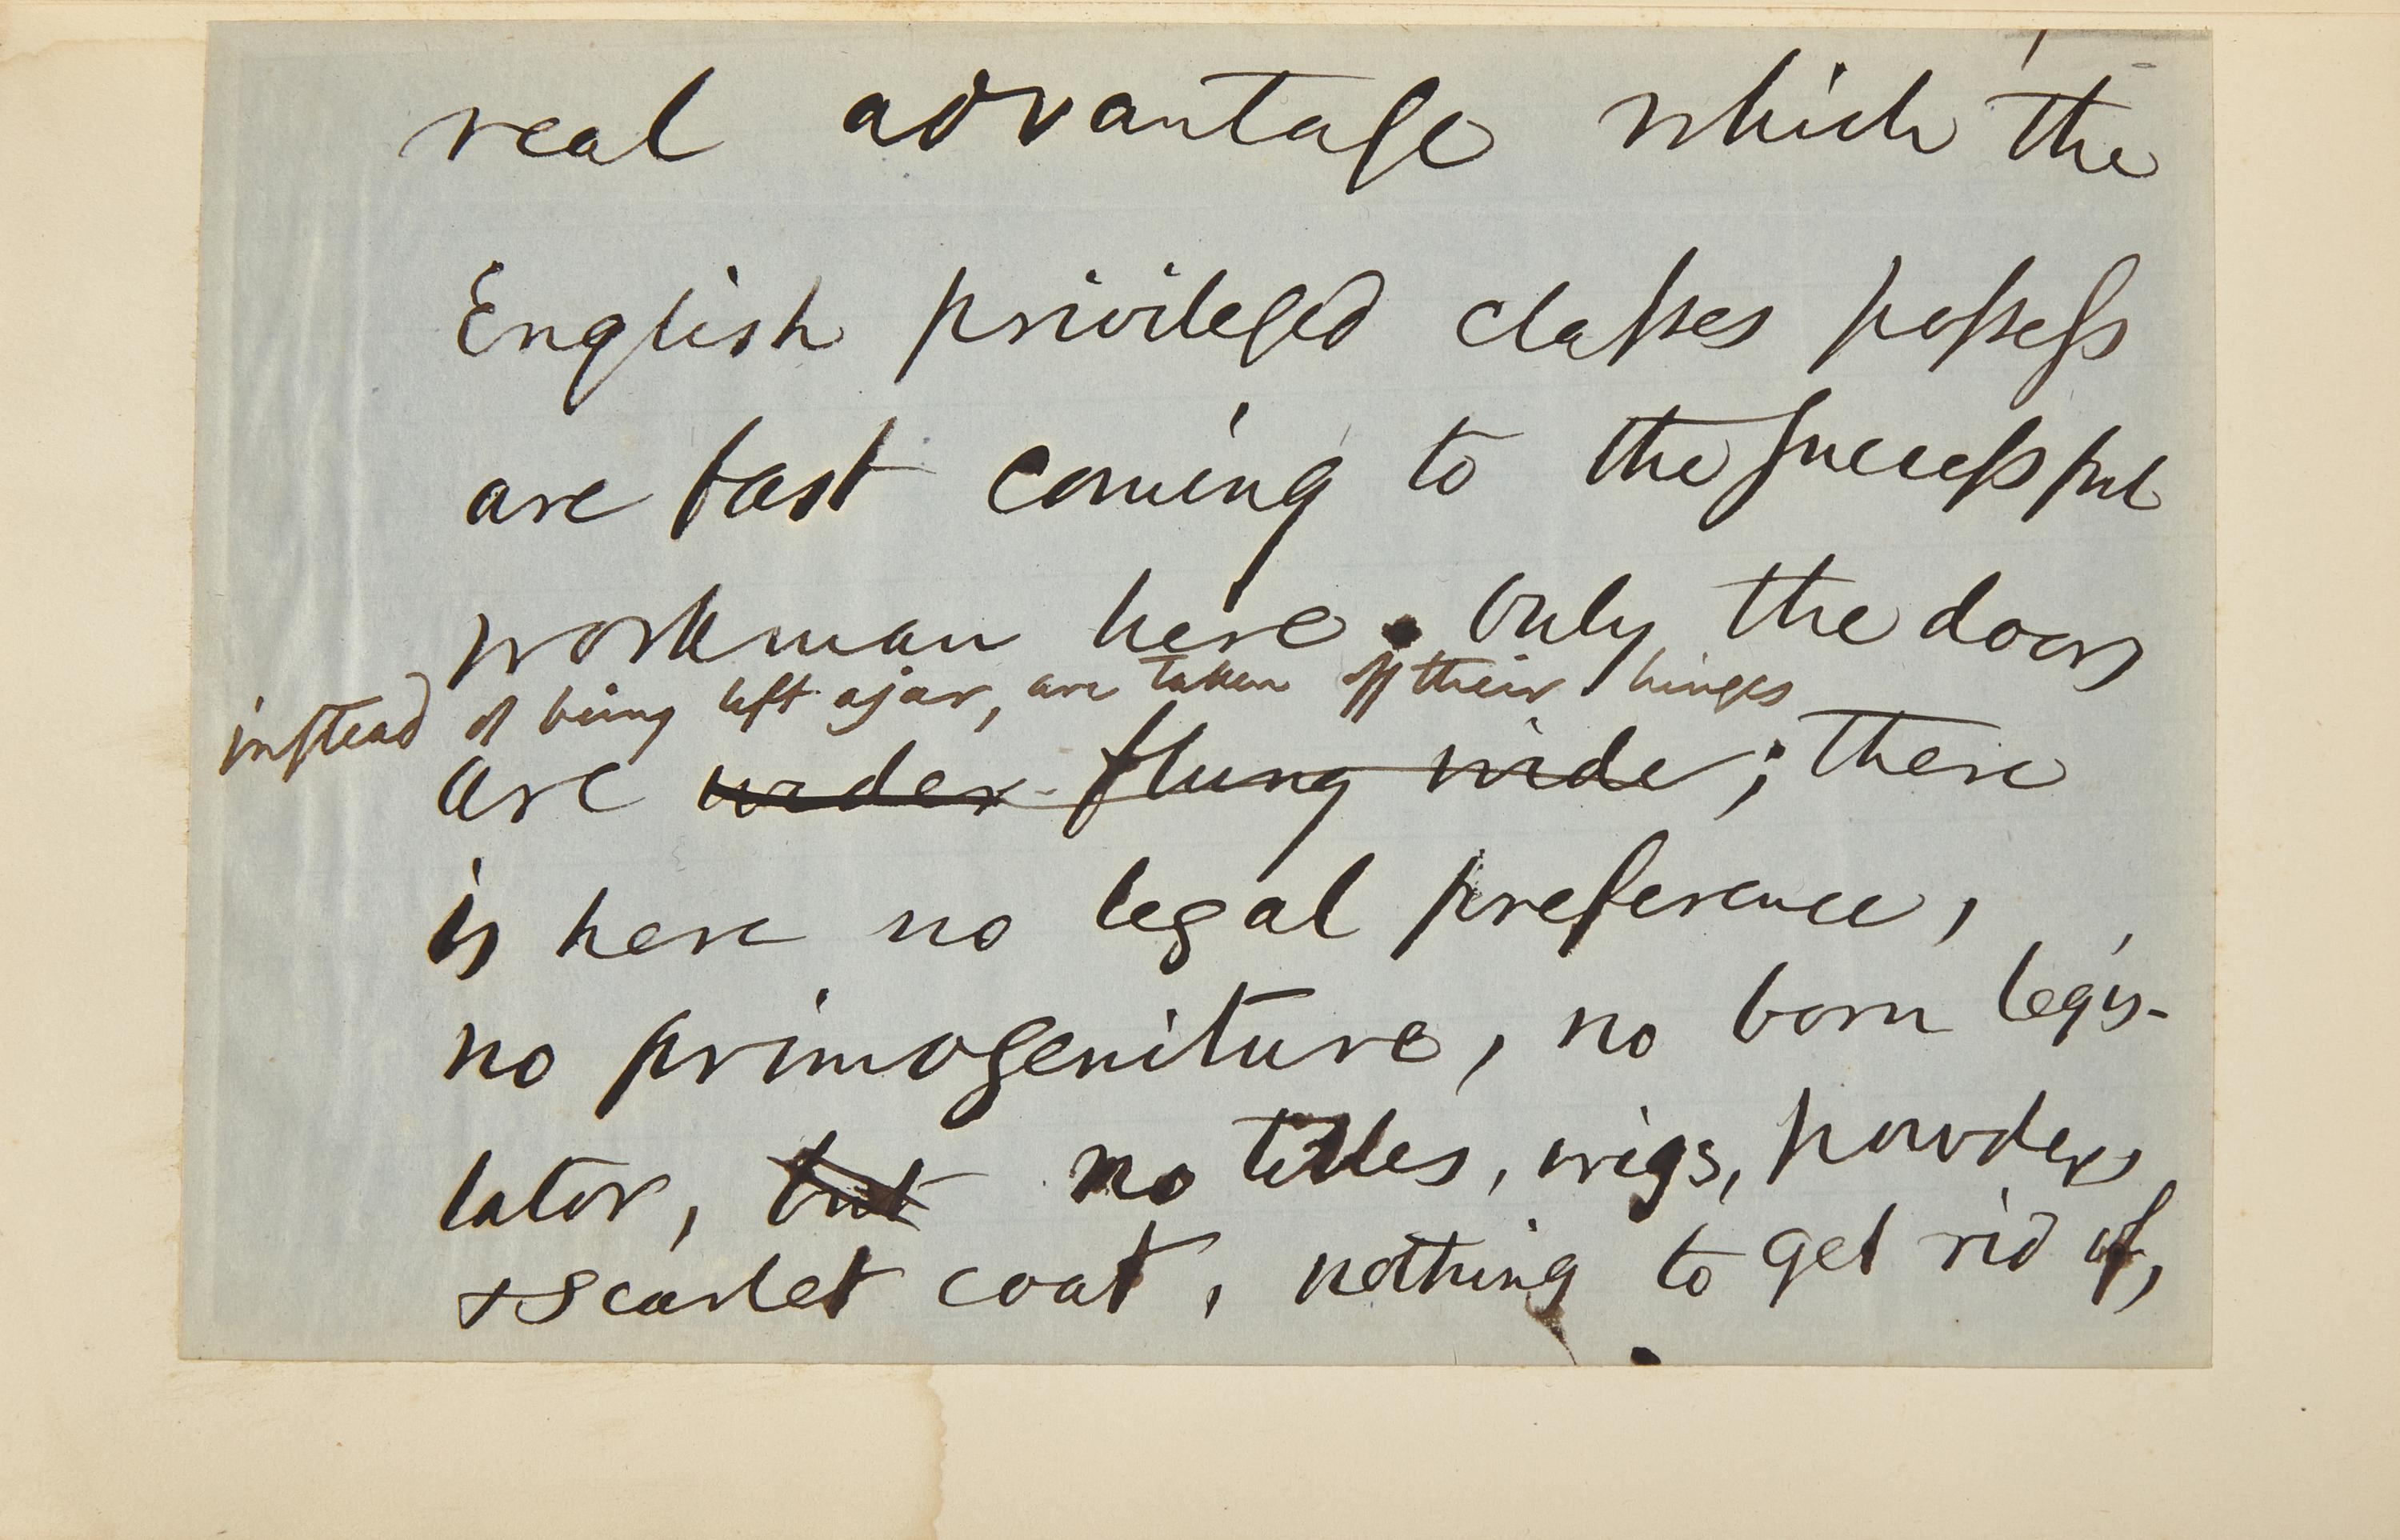 real advantage which the
English privileged classes possess
are fast coming to the successful
workman here. Only the doors
instead of being left ajar, are taken off their hinges
are wider flung wide; there
is here no legal preference,
no primogeniture, no born legis-
lator, but no titles, wigs, powders
& scarlet coat, nothing to get rid of,